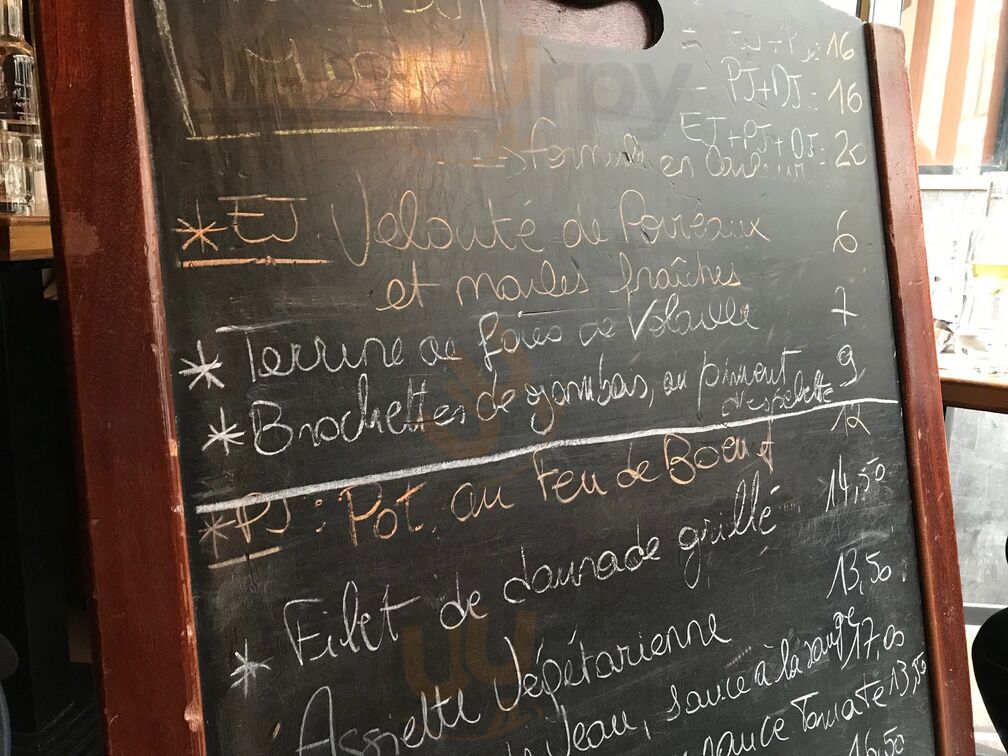 16
PJ+DJ: 16
EJ+PJ+DJ: 20
formule en couleur
* EJ Velouté de Poireaux 6
et moules fraîches
* Terrine de foies de Volaille 7
* Brochettes de gambas, au piment 9
d'espelette
* PJ: Pot au Feu de Boeuf 12
Filet de daurade grillé 14,50
* Assiette Végétarienne 13,50
Veau, sauce à la sauge 17,00
sauce Tomate 13,50
16,50